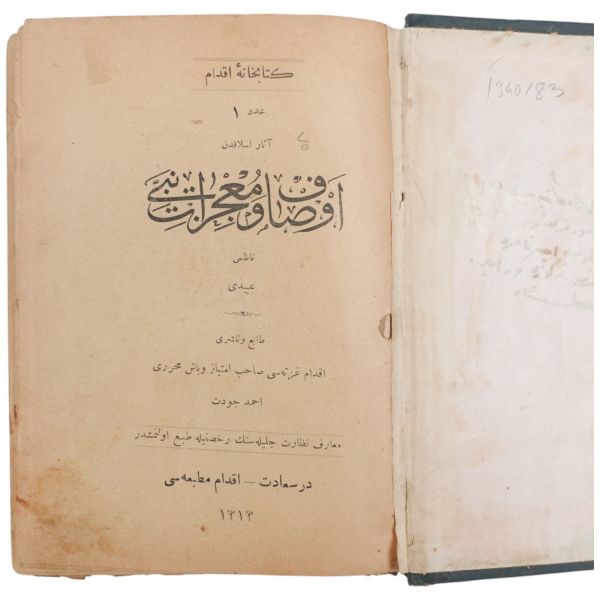 کتابخانۀ اقدام
عدد ١
آثار اسلافدن
اوصاف و معجزات نبی
ناظمی
عبیدی
طابع و ناشری
اقدام غزته‌سی صاحب امتیاز و باش محرری
احمد جودت
معارف نظارت جلیله‌سنك رخصتیله طبع اولنمشدر
درسعادت — اقدام مطبعه‌سی
١٣١٣
1340/83